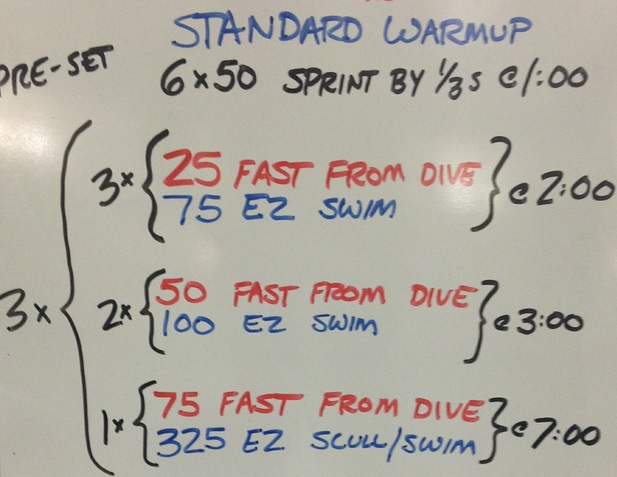 STANDARD WARMUP
PRE-SET 6x50 SPRINT BY 1/3s @ 1:00
3x { 3x { 25 FAST FROM DIVE
75 EZ SWIM } @ 2:00
2x { 50 FAST FROM DIVE
100 EZ SWIM } @ 3:00
1x { 75 FAST FROM DIVE
325 EZ SCULL/SWIM } @ 7:00